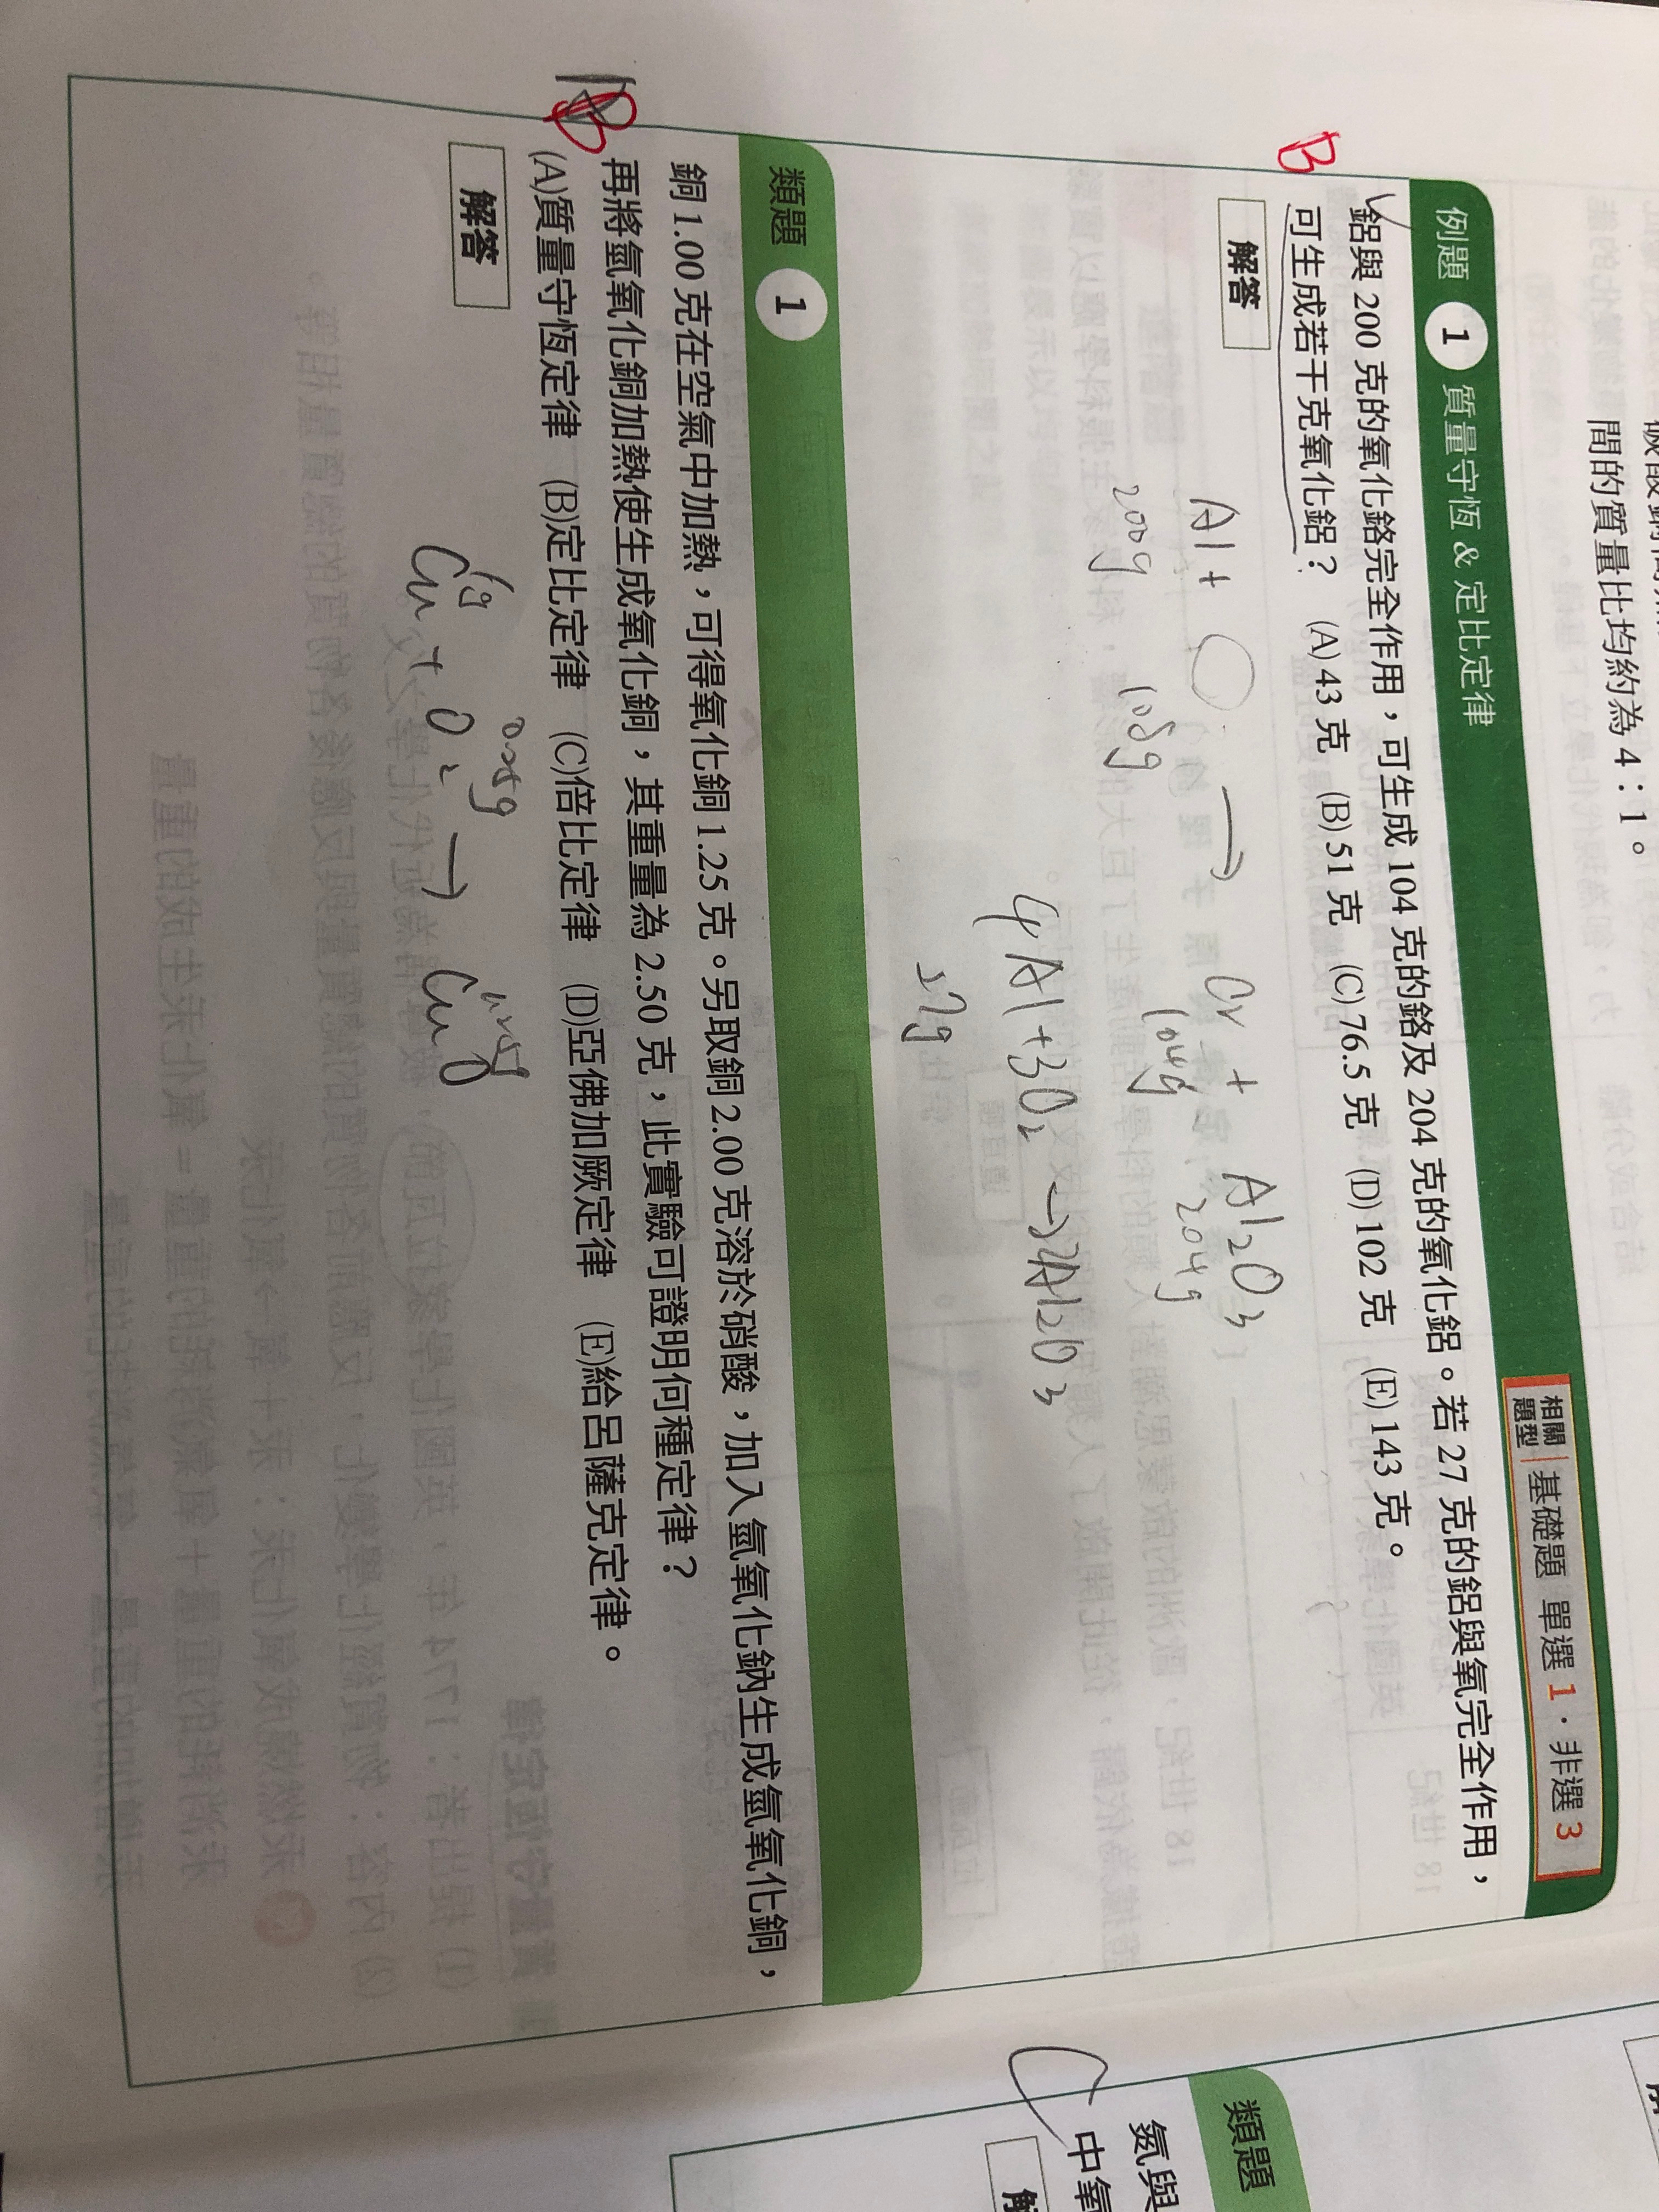 間的質量比均約為 4：1。
例題 1 質量守恆 & 定比定律
相關題型 基礎題 單選 1．非選 3
B
鋁與 200 克的氧化鉻完全作用，可生成 104 克的鉻及 204 克的氧化鋁。若 27 克的鋁與氧完全作用，
可生成若干克氧化鋁？ (A) 43 克 (B) 51 克 (C) 76.5 克 (D) 102 克 (E) 143 克。
解答
Al + ○ → Cr + Al2O3
200g 108g 104g 204g
4Al + 3O2 → 2Al2O3
27g
類題 1
B
銅 1.00 克在空氣中加熱，可得氧化銅 1.25 克。另取銅 2.00 克溶於硝酸，加入氫氧化鈉生成氫氧化銅，
再將氫氧化銅加熱使生成氧化銅，其重量為 2.50 克，此實驗可證明何種定律？
(A)質量守恆定律 (B)定比定律 (C)倍比定律 (D)亞佛加厥定律 (E)給呂薩克定律。
解答
1g 0.25g 1.25g
Cu + O2 → CuO
類題
氮與
中氧